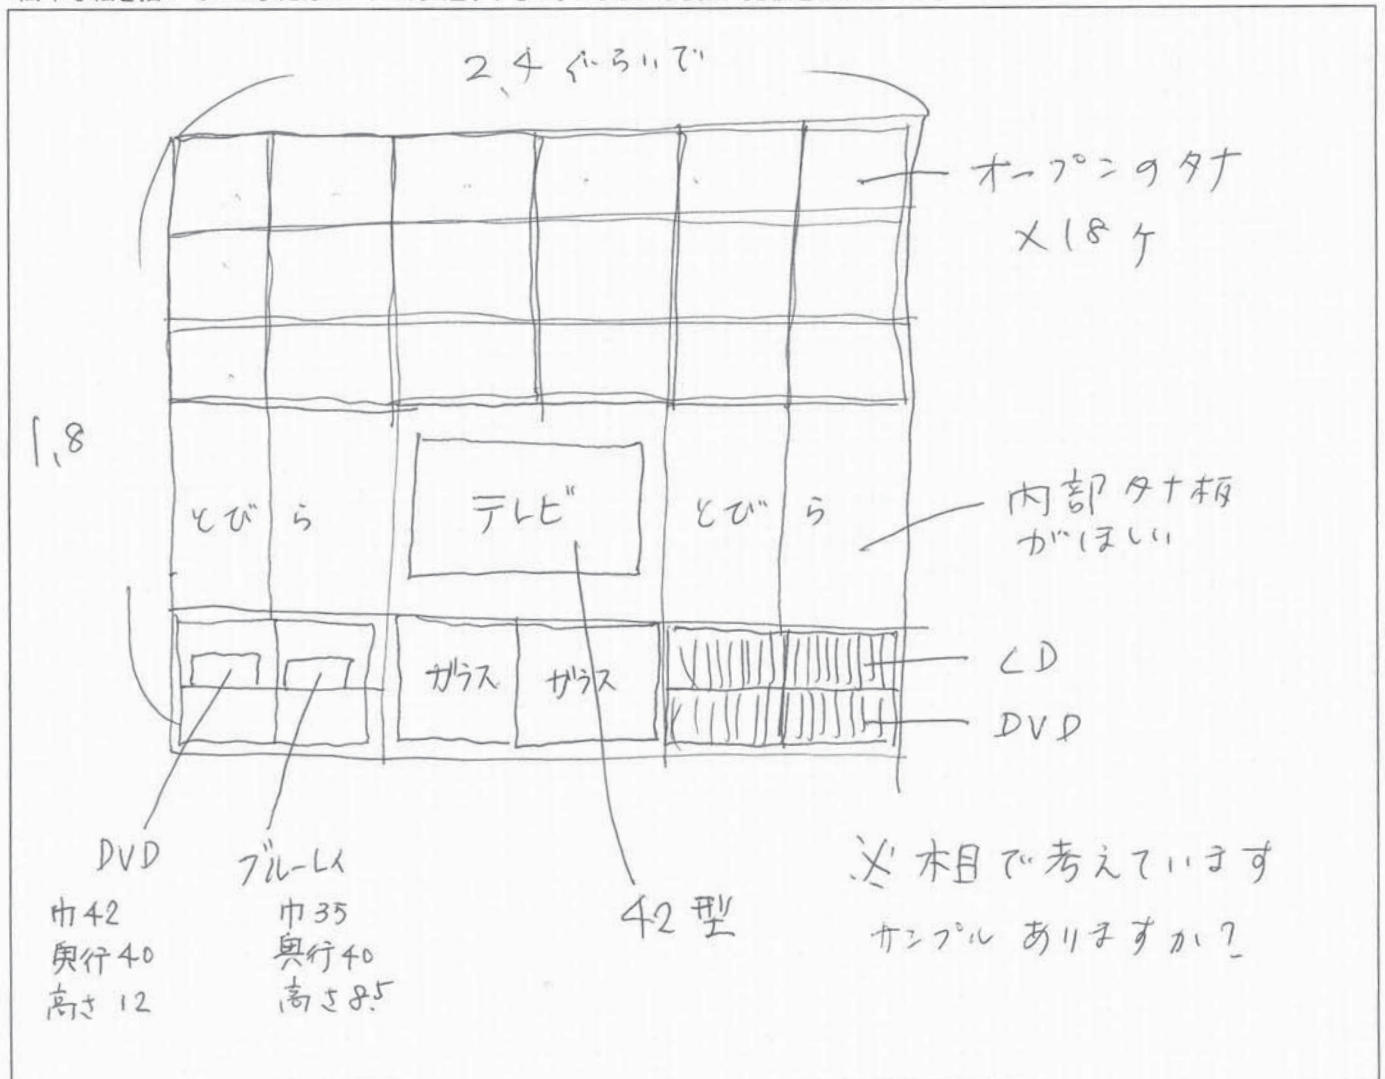 2,4 ぐらいで
オープンのタナ
×18ケ
1,8
とびら
テレビ
とびら
内部タナ板
がほしい
ガラス
ガラス
CD
DVD
DVD
巾42
奥行40
高さ12
ブルーレイ
巾35
奥行40
高さ8.5
42型
※木目で考えています
サンプルありますか?